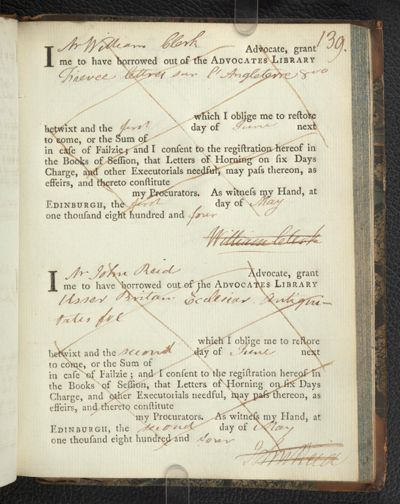 139.
I Mr William Clerk Advocate, grant
me to have borrowed out of the ADVOCATES LIBRARY
lettres sur l'Angleterre 8vo
which I oblige me to reſtore
betwixt and the first day of June next
to come, or the Sum of
in caſe of Failzie; and I conſent to the regiſtration hereof in
the Books of Seſſion, that Letters of Horning on ſix Days
Charge, and other Executorials needful, may paſs thereon, as
effeirs, and thereto conſtitute
my Procurators. As witneſs my Hand, at
EDINBURGH, the first day of May
one thouſand eight hundred and four
William Clerk
I Mr John Reid Advocate, grant
me to have borrowed out of the ADVOCATES LIBRARY
Usser Britan Ecclesiar. Antiqui-
tates fol
which I oblige me to reſtore
betwixt and the second day of June next
to come, or the Sum of
in caſe of Failzie; and I conſent to the regiſtration hereof in
the Books of Seſſion, that Letters of Horning on ſix Days
Charge, and other Executorials needful, may paſs thereon, as
effeirs, and thereto conſtitute
my Procurators. As witneſs my Hand, at
EDINBURGH, the second day of May
one thouſand eight hundred and four
John Reid